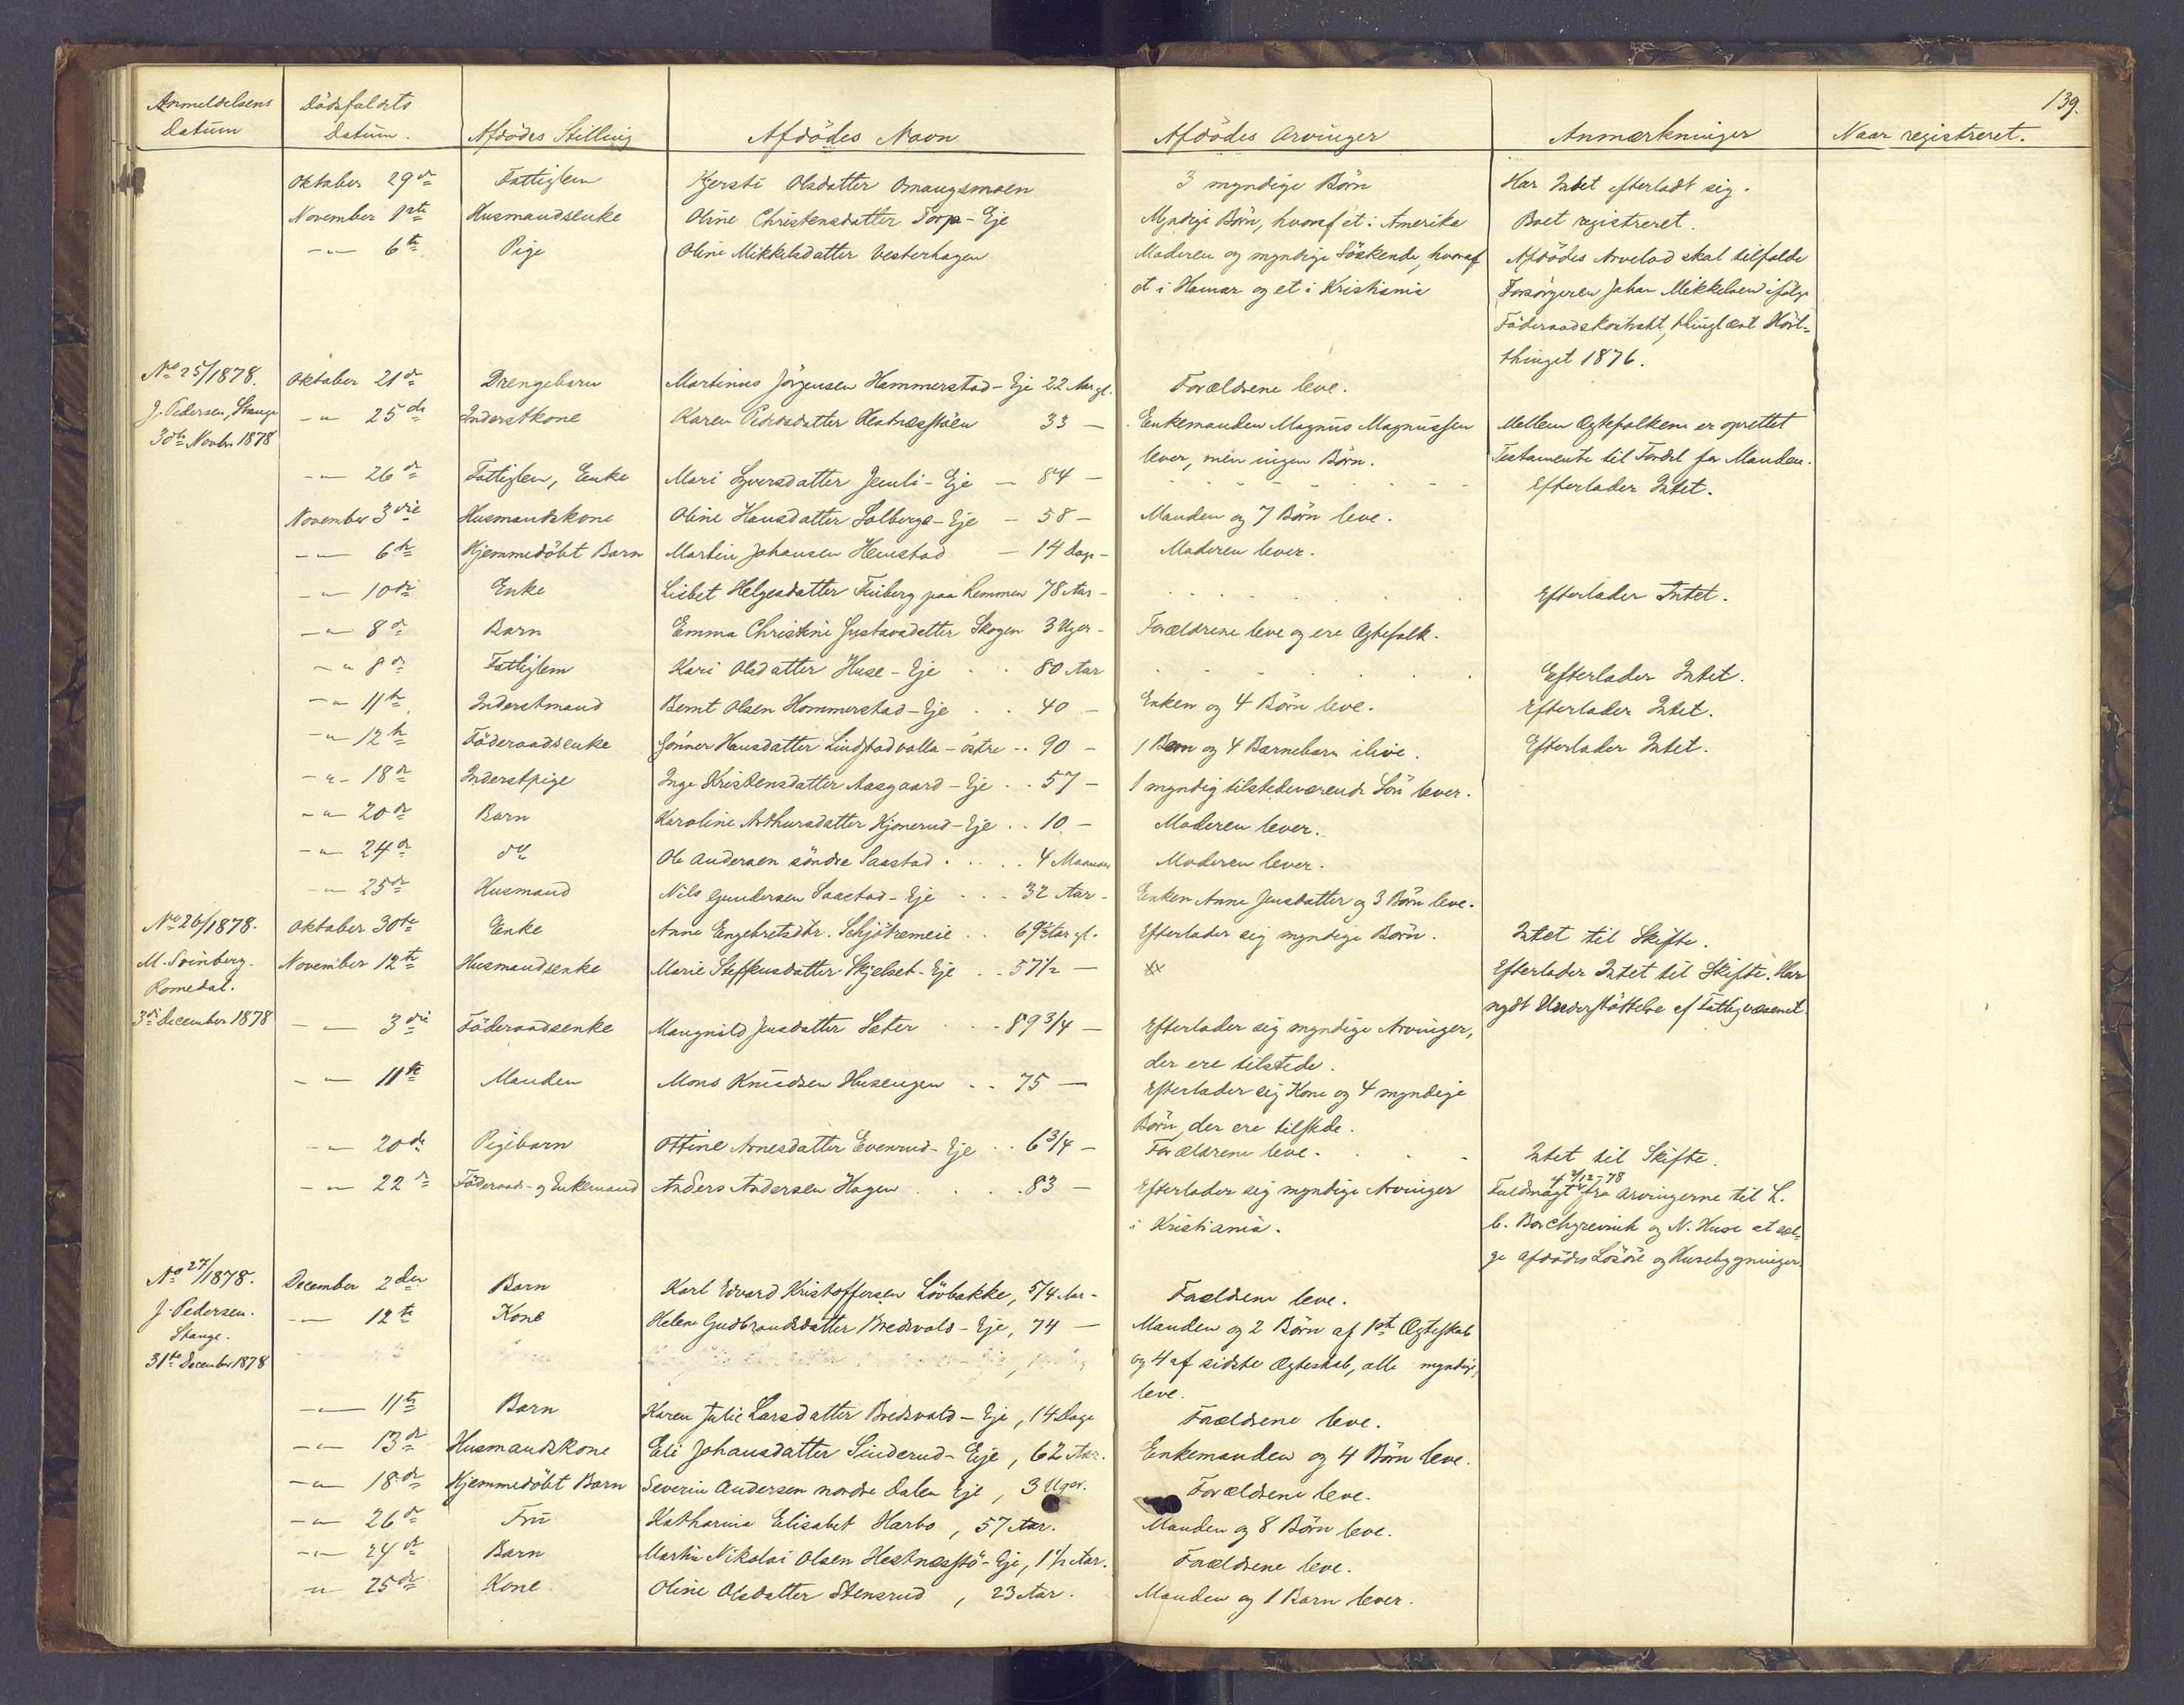 139.
Anmeldelsens Datum | Dödsfaldets Datum. | Afdödes Stilling | Afdödes Navn | Afdödes Arvinger | Anmærkninger | Naar registreret.
Oktober 29de Fattiglem Kjersti Olsdatter Omangsmoen 3 myndige Börn Har Intet efterladt sig.
November 1ste Husmandsenke Oline Christensdatter Torp-Eje Myndige Börn, hvoraf et i Amerika Boet registreret.
-"- 6te Pige Oline Mikkelsdatter Vesterhagen Moderen og myndige Söskende, hvoraf Afdödes Arvelod skal tilfalde
et i Hamar og et i Kristiania Forsörgeren Johan Mikkelsen ifölge
Föderaadskontrakt, thinglæst Höst-
thinget 1876.
No 25/1878. Oktober 21de Drengebarn Martinus Jörgensen Hammerstad-Eje 22 Aar gl. Forældrene leve.
J. Pedersen, Stange -"- 25de Inderstkone Karen Pedersdatter Hestnæsstöen 33 — Enkemanden Magnus Magnussen Mellem Ægtefolkene er oprettet
30te Novbr 1878 lever, men ingen Börn. Testamente til Fordel for Manden.
-"- 26de Fattiglem, Enke Mari Syversdatter Jemli-Eje — 84 — Efterlader Intet.
November 3die Husmandskone Oline Hansdatter Solberg-Eje — 58 — Manden og 7 Börn leve.
-"- 6te Hjemmedöbt Barn Martin Johansen Hemstad — 14 Dage - Moderen lever.
-"- 10de Enke Lisbet Helgesdatter Finberg paa Lemmen 78 Aar - Efterlader Intet.
-"- 8de Barn Emma Christine Gustavsdatter Skogen 3 Uger - Forældrene leve og ere Ægtefolk.
-"- 8de Fattiglem Kari Olsdatter Huse-Eje 80 Aar Efterlader Intet.
-"- 11te Inderstmand Bernt Olsen Hommerstad-Eje 40 — Enken og 4 Börn leve. Efterlader Intet.
-"- 12te Föderaadsenke Gönner Hansdatter Lindstadvalla-östre 90 — 1 Barn og 4 Barnebarn ilive. Efterlader Intet.
-"- 18de Inderstpige Inge Kristensdatter Aasgaard-Eje 57 — 1 myndig tilstedeværende Sön lever.
-"- 20de Barn Karoline Arthursdatter Kjonerud-Eje 10 — Moderen lever.
-"- 24de do Ole Andersen söndre Saastad 4 Maaneder Moderen lever.
-"- 25de Husmand Nils Gundersen Saastad-Eje 32 Aar - Enken Anne Jensdatter og 3 Börn leve.
No 26/1878. Oktober 30te Enke Anne Engebretsdtr. Schjötsmeie 69½ Aar gl. Efterlader sig myndige Börn. Intet til Skifte.
M. Svinberg. November 12te Husmandsenke Marie Steffensdatter Skjelset-Eje 57½ — Efterlader Intet til Skifte. Har
Romedal. nydt Understöttelse af Fattigvæsenet.
3die December 1878 -"- 3die Föderaadsenke Maugnild Jensdatter Sæter 89 3/4 — Efterlader sig myndige Arvinger,
der ere tilstede.
-"- 11te Manden Mons Knudsen Husengen 75 — Efterlader sig Kone og 4 myndige
Börn, der ere tilstede.
-"- 20de Pigebarn Ottine Arnesdatter Evenrud-Eje 6 3/4 — Forældrene leve. Intet til Skifte.
-"- 22de Föderaads- og Enkemand Anders Andersen Hagen 83 — Efterlader sig myndige Arvinger Fuldmagt af 2/12-78 fra Arvingerne til L.
i Kristiania. C. Borchgrevink og N. Huse at sæl-
ge afdödes Lösöre og Husebygninger.
No 27/1878. December 2den Barn Karl Edvard Kristoffersen Lövbakke, 5/4 Aar - Forældrene leve.
J. Pedersen. -"- 12te Kone Helene Gudbrandsdatter Bredsvold-Eje, 74 — Manden og 2 Börn af 1ste Ægteskab
Stange.
31te December 1878 og 4 af sidste Ægteskab, alle myndige,
leve.
-"- 11te Barn Karen Julie Larsdatter Bredsvold-Eje, 14 Dage Forældrene leve.
-"- 13de Husmandskone Eli Johansdatter Sinderud-Eje, 62 Aar. Enkemanden og 4 Börn leve.
-"- 18de Hjemmedöbt Barn Severin Andersen nordre Dalen Eje, 3 Uger. Forældrene leve.
-"- 26de Fru Katharina Elisabet Harbo, 57 Aar. Manden og 8 Börn leve.
-"- 24de Barn Martin Nikolai Olsen Hestnæsstö-Eje, 1½ Aar. Forældrene leve.
-"- 25de Kone Oline Olsdatter Stensrud, 23 Aar. Manden og 1 Barn lever.